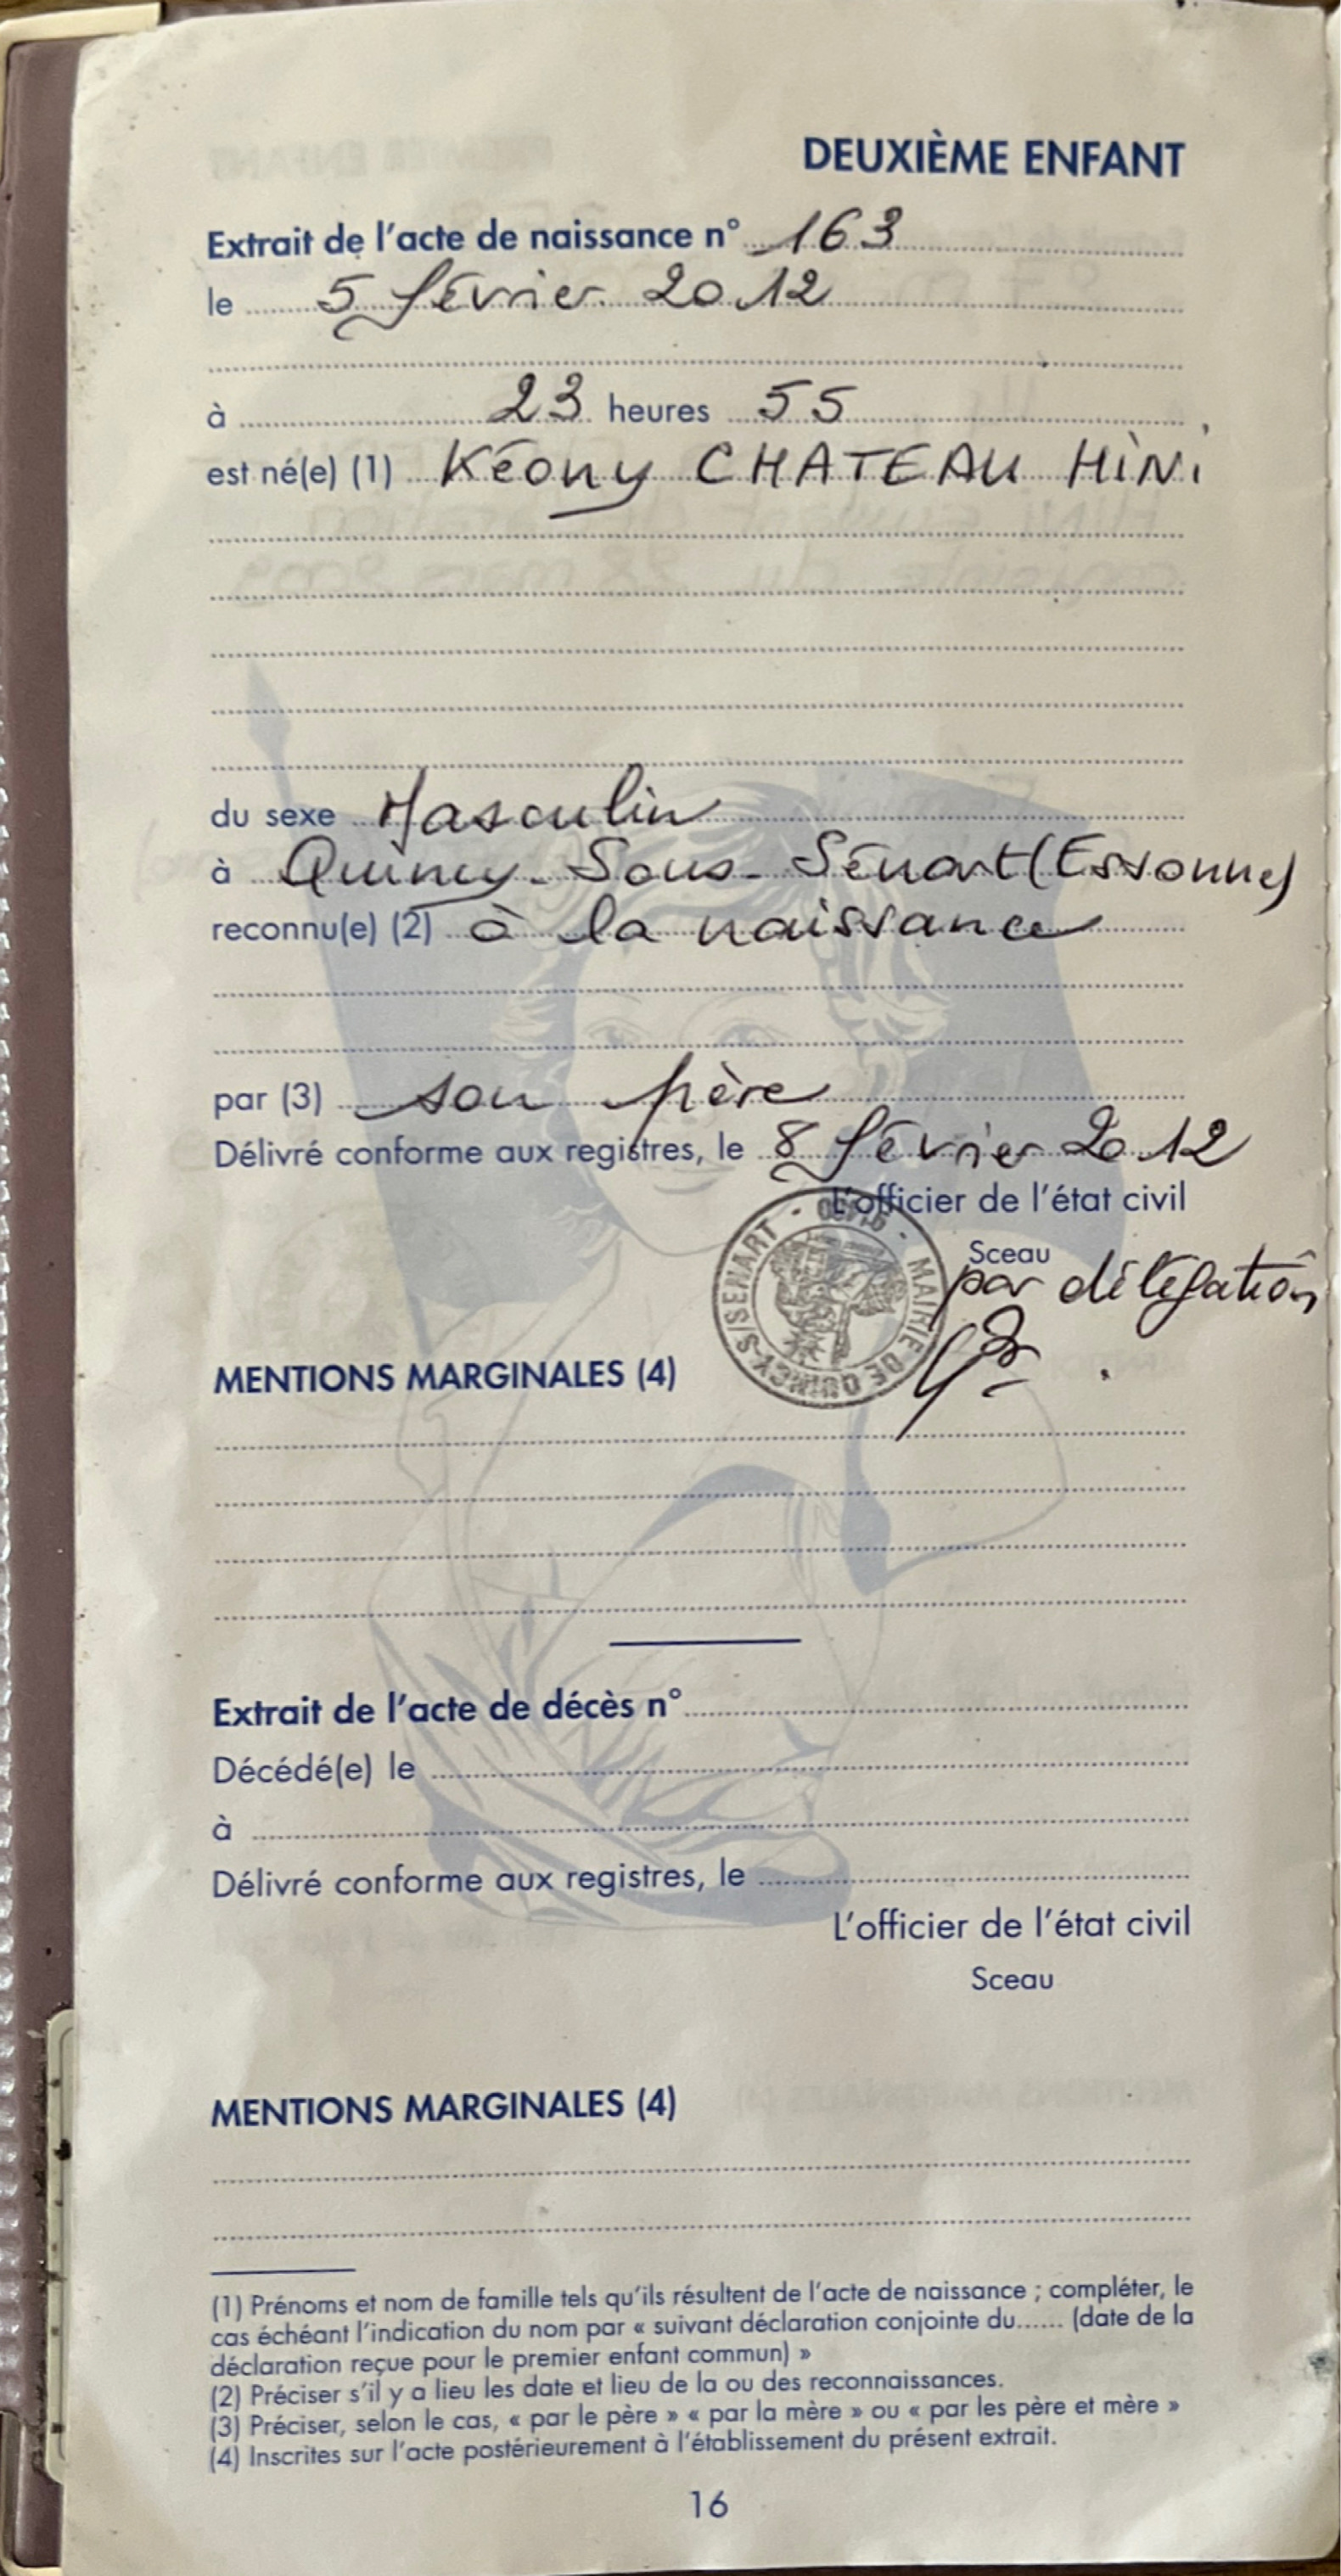 DEUXIÈME ENFANT
Extrait de l'acte de naissance n° 163
le 5 février 2012
à 23 heures 55
est né(e) (1) Kéony CHATEAU HINI
du sexe Masculin
à Quincy-Sous-Sénart (Essonne)
reconnu(e) (2) à la naissance
par (3) son père
Délivré conforme aux registres, le 8 février 2012
L'officier de l'état civil
Sceau
par délégation
MAIRIE DE QUINCY-S/SENART
MENTIONS MARGINALES (4)
Extrait de l'acte de décès n°
Décédé(e) le
à
Délivré conforme aux registres, le
L'officier de l'état civil
Sceau
MENTIONS MARGINALES (4)
(1) Prénoms et nom de famille tels qu'ils résultent de l'acte de naissance ; compléter, le
cas échéant l'indication du nom par « suivant déclaration conjointe du...... (date de la
déclaration reçue pour le premier enfant commun) »
(2) Préciser s'il y a lieu les date et lieu de la ou des reconnaissances.
(3) Préciser, selon le cas, « par le père » « par la mère » ou « par les père et mère »
(4) Inscrites sur l'acte postérieurement à l'établissement du présent extrait.
16